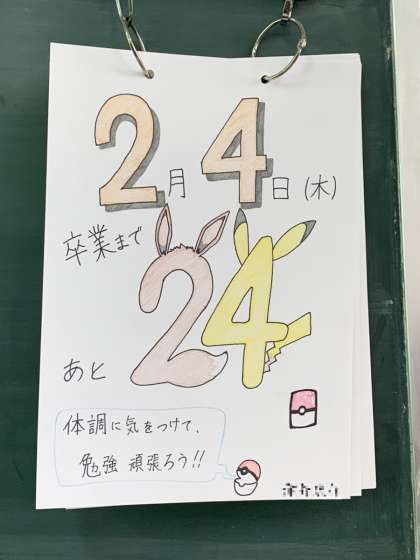 2月4日(木)
卒業まで
あと 24
体調に気をつけて、
勉強 頑張ろう!!